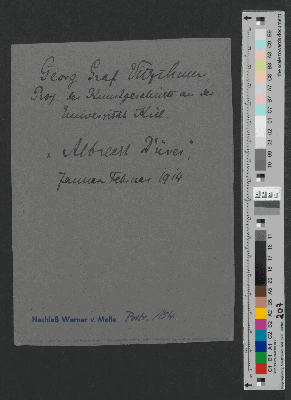 Georg Graf Vitzthum
Prof. der Kunstgeschichte an der
Universität Kiel.
"Albrecht Dürer",
Januar Februar 1914
Nachlaß Werner v. Melle Portr. 184
207